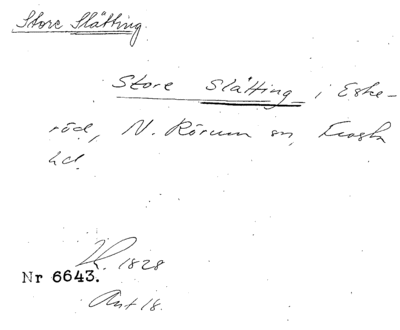 Store Slåtting
Store Slåtting i Eske-
röd, N. Rörum sn, Frosta
hd.
K. 1828
Nr 6643.
Akt 18.